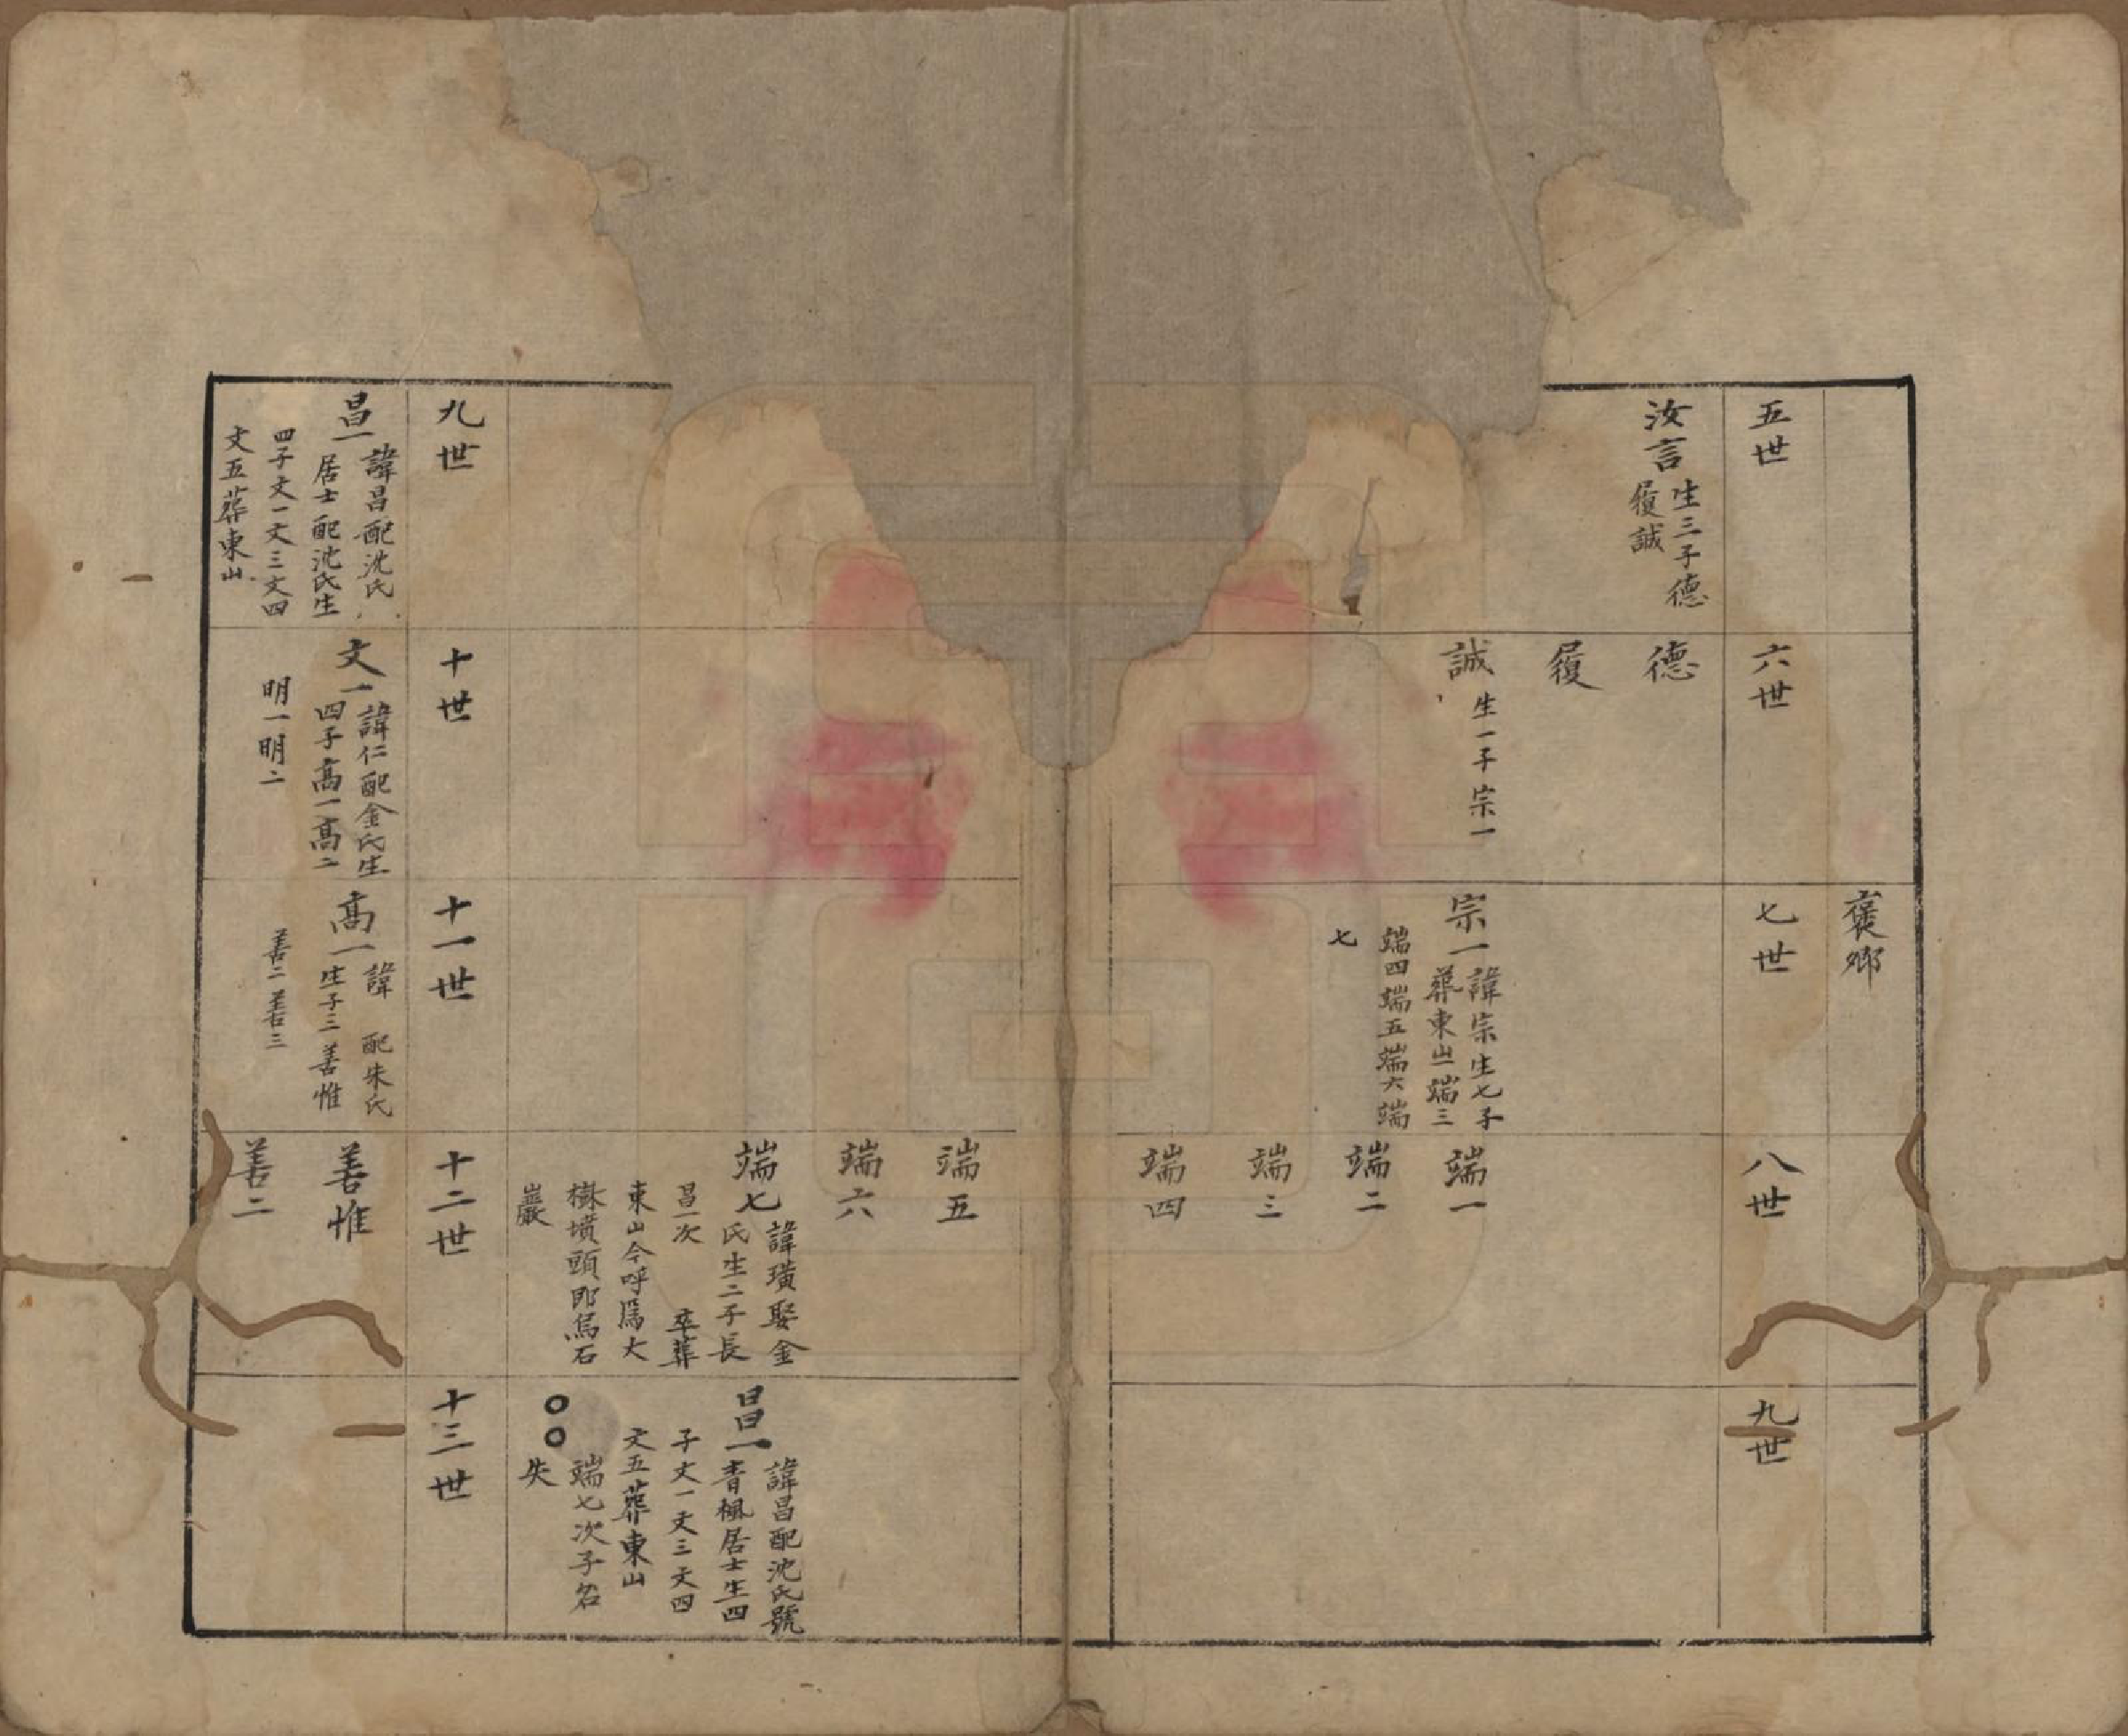 褒鄉
五世
六世
七世
八世
九世
汝言
生三子德
履誠
德
履
誠
生一子宗一
宗一
諱宗生七子
葬東山端三
端四端五端六端
七
端一
端二
端三
端四
端五
端六
端七
諱璜娶金
氏生二子長
昌一次 卒葬
東山今呼為大
樹墳頭即烏石
巖
昌一
諱昌配沈氏號
青楓居士生四
子文一文三文四
文五葬東山
〇〇
端七次子名
失
九世
十世
十一世
十二世
十三世
昌一
諱昌配沈氏
居士配沈氏生
四子文一文三文四
文五葬東山
文一
諱仁配金氏生
四子高一高二
明一明二
高一
諱 配朱氏
生子三善惟
善二善三
善惟
善二